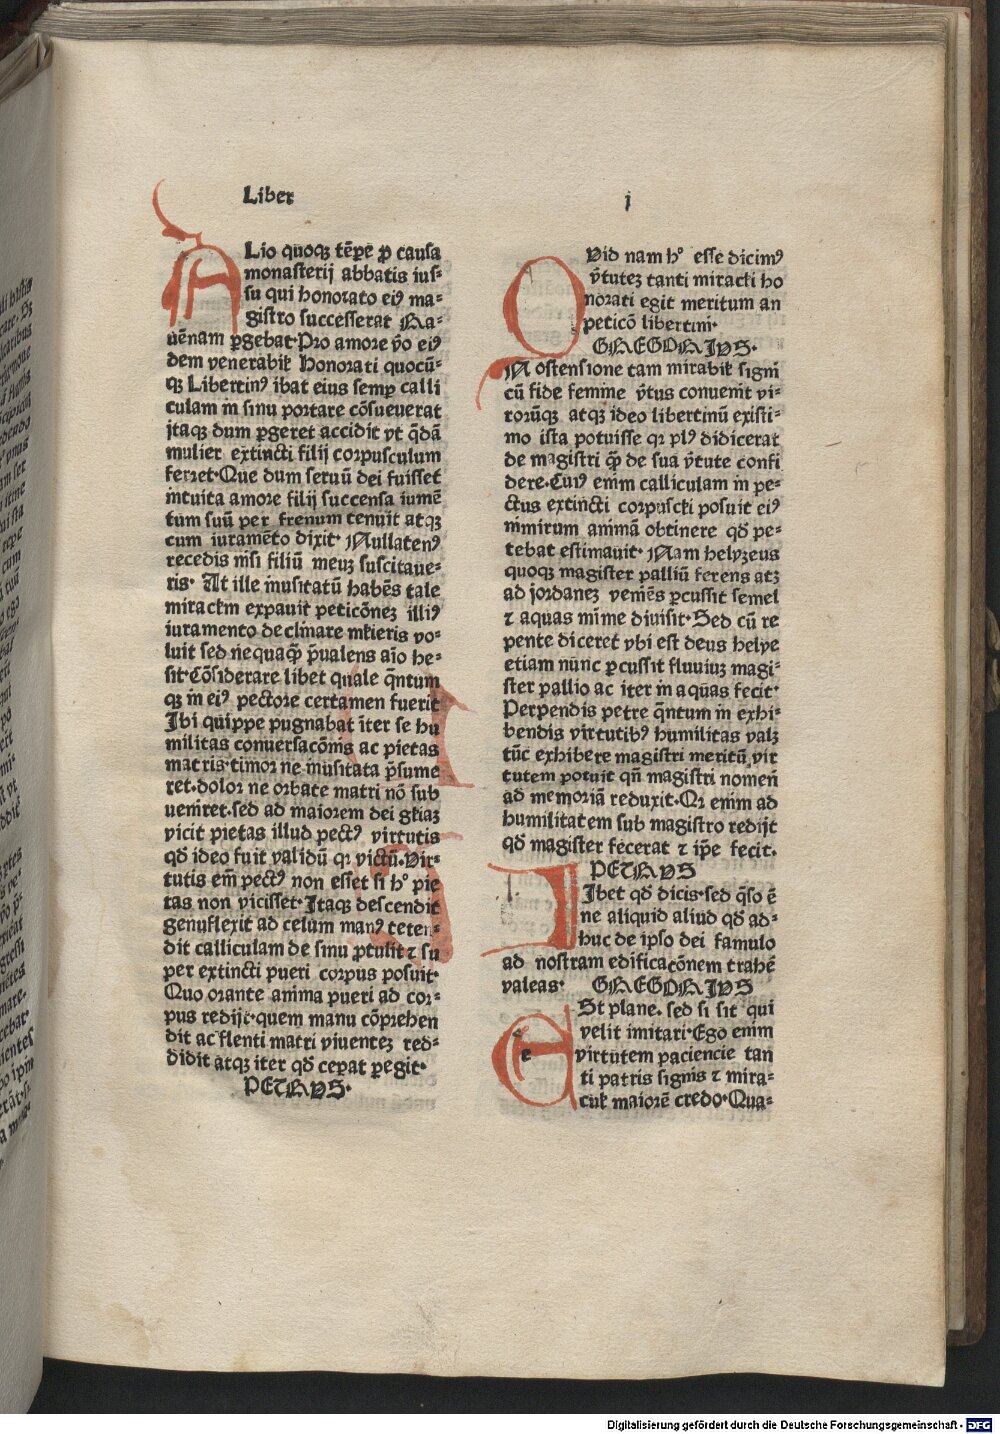 Liber
i
ALio quoqꝫ tēꝑe ꝓ causa
monasterij abbatis ius⸗
su qui honorato eiꝰ ma⸗
gistro successerat Ra⸗
uēnam ꝑgebat·Pro amore v̄o eiꝰ
dem venerabiꝉ Honorati quocū⸗
qꝫ Libertinꝰ ibat eius semꝑ calli
culam in sinu portare cōsueuerat
jtaqꝫ dum ꝑgeret accidit vt q̄dā
mulier extincti filij corpusculum
ferret·Que dum seruū dei fuisset
intuita amore filij succensa iumē
tum suū per frenum tenuit atqꝫ
cum iuramēto dixit· Nullatenꝰ
recedis nisi filiū meuꝫ suscitaue⸗
ris· At ille inusitatū habēs tale
miracꝉm expauit peticōneꝫ illiꝰ
iuramento declinare mꝉieris vo⸗
luit sed nequaqꝫ p̄ualens aīo he⸗
sit·Cōsiderare libet quale q̄ntum
qꝫ in eiꝰ pectore certamen fuerit
Ibi quippe pugnabat īter se hu
militas conuersacōnis ac pietas
matris·timor ne inusitata p̄sume
ret·dolor ne orbate matri nō sub
ueniret·sed ad maiorem dei gꝉiaꝫ
vicit pietas illud pectꝰ virtutis
qd̄ ideo fuit validū qꝛ victū·Vir⸗
tutis em̄ pectꝰ non esset si hͦ pie
tas non vicisset·Itaqꝫ descendit
genuflexit ad celum manꝰ teten⸗
dit calliculam de sinu ꝓtulit ⁊ su
per extincti pueri corpus posuit·
Quo orante anima pueri ad cor⸗
pus redijt·quem manu cōprehen
dit ac flenti matri viuenteꝫ red⸗
didit atqꝫ iter qd̄ ceꝑat ꝑegit·
PETRVS·
Vid nam hͦ esse dicimꝰ
v̄tuteꝫ tanti miracꝉi ho
norati egit meritum an
peticō libertini·
GREGORIVS·
IN ostensione tam mirabiꝉ signi
cū fide femine v̄tus conuenit vi⸗
rorūqꝫ atqꝫ ideo libertinū existi⸗
mo ista potuisse qꝛ plꝰ didicerat
de magistri qꝫ de sua v̄tute confi
dere·Cuiꝰ enim calliculam in pe⸗
ctus extincti corpuscꝉi posuit eiꝰ
nimirum animā obtinere qd̄ pe⸗
tebat estimauit· Nam helyzeus
quoqꝫ magister palliū ferens atꝫ
ad jordaneꝫ veniēs ꝑcussit semel
⁊ aquas minime diuisit·Sed cū re
pente diceret vbi est deus helye
etiam nūnc ꝑcussit fluuiuꝫ magi⸗
ster pallio ac iter in aquas fecit·
Perpendis petre q̄ntum in exhi⸗
bendis virtutibꝰ humilitas valꝫ
tūc exhibere magistri meritū vir
tutem potuit qn̄ magistri nomen̄
ad memoriā reduxit·Qꝛ enim ad
humilitatem sub magistro redijt
qd̄ magister fecerat ⁊ ip̄e fecit.
PETRVS
LIbet qd̄ dicis·sed q̄so ē
ne aliquid aliud qd̄ ad⸗
huc de ipso dei famulo
ad nostram edificacōnem trahē
valeas· GREGORIVS
ESt plane. sed si sit qui
velit imitari·Ego enim
virtutem paciencie tan
ti patris signis ⁊ mira⸗
culꝉ maiorē credo·Qua⸗
Digitalisierung gefördert durch die Deutsche Forschungsgemeinschaft - DFG